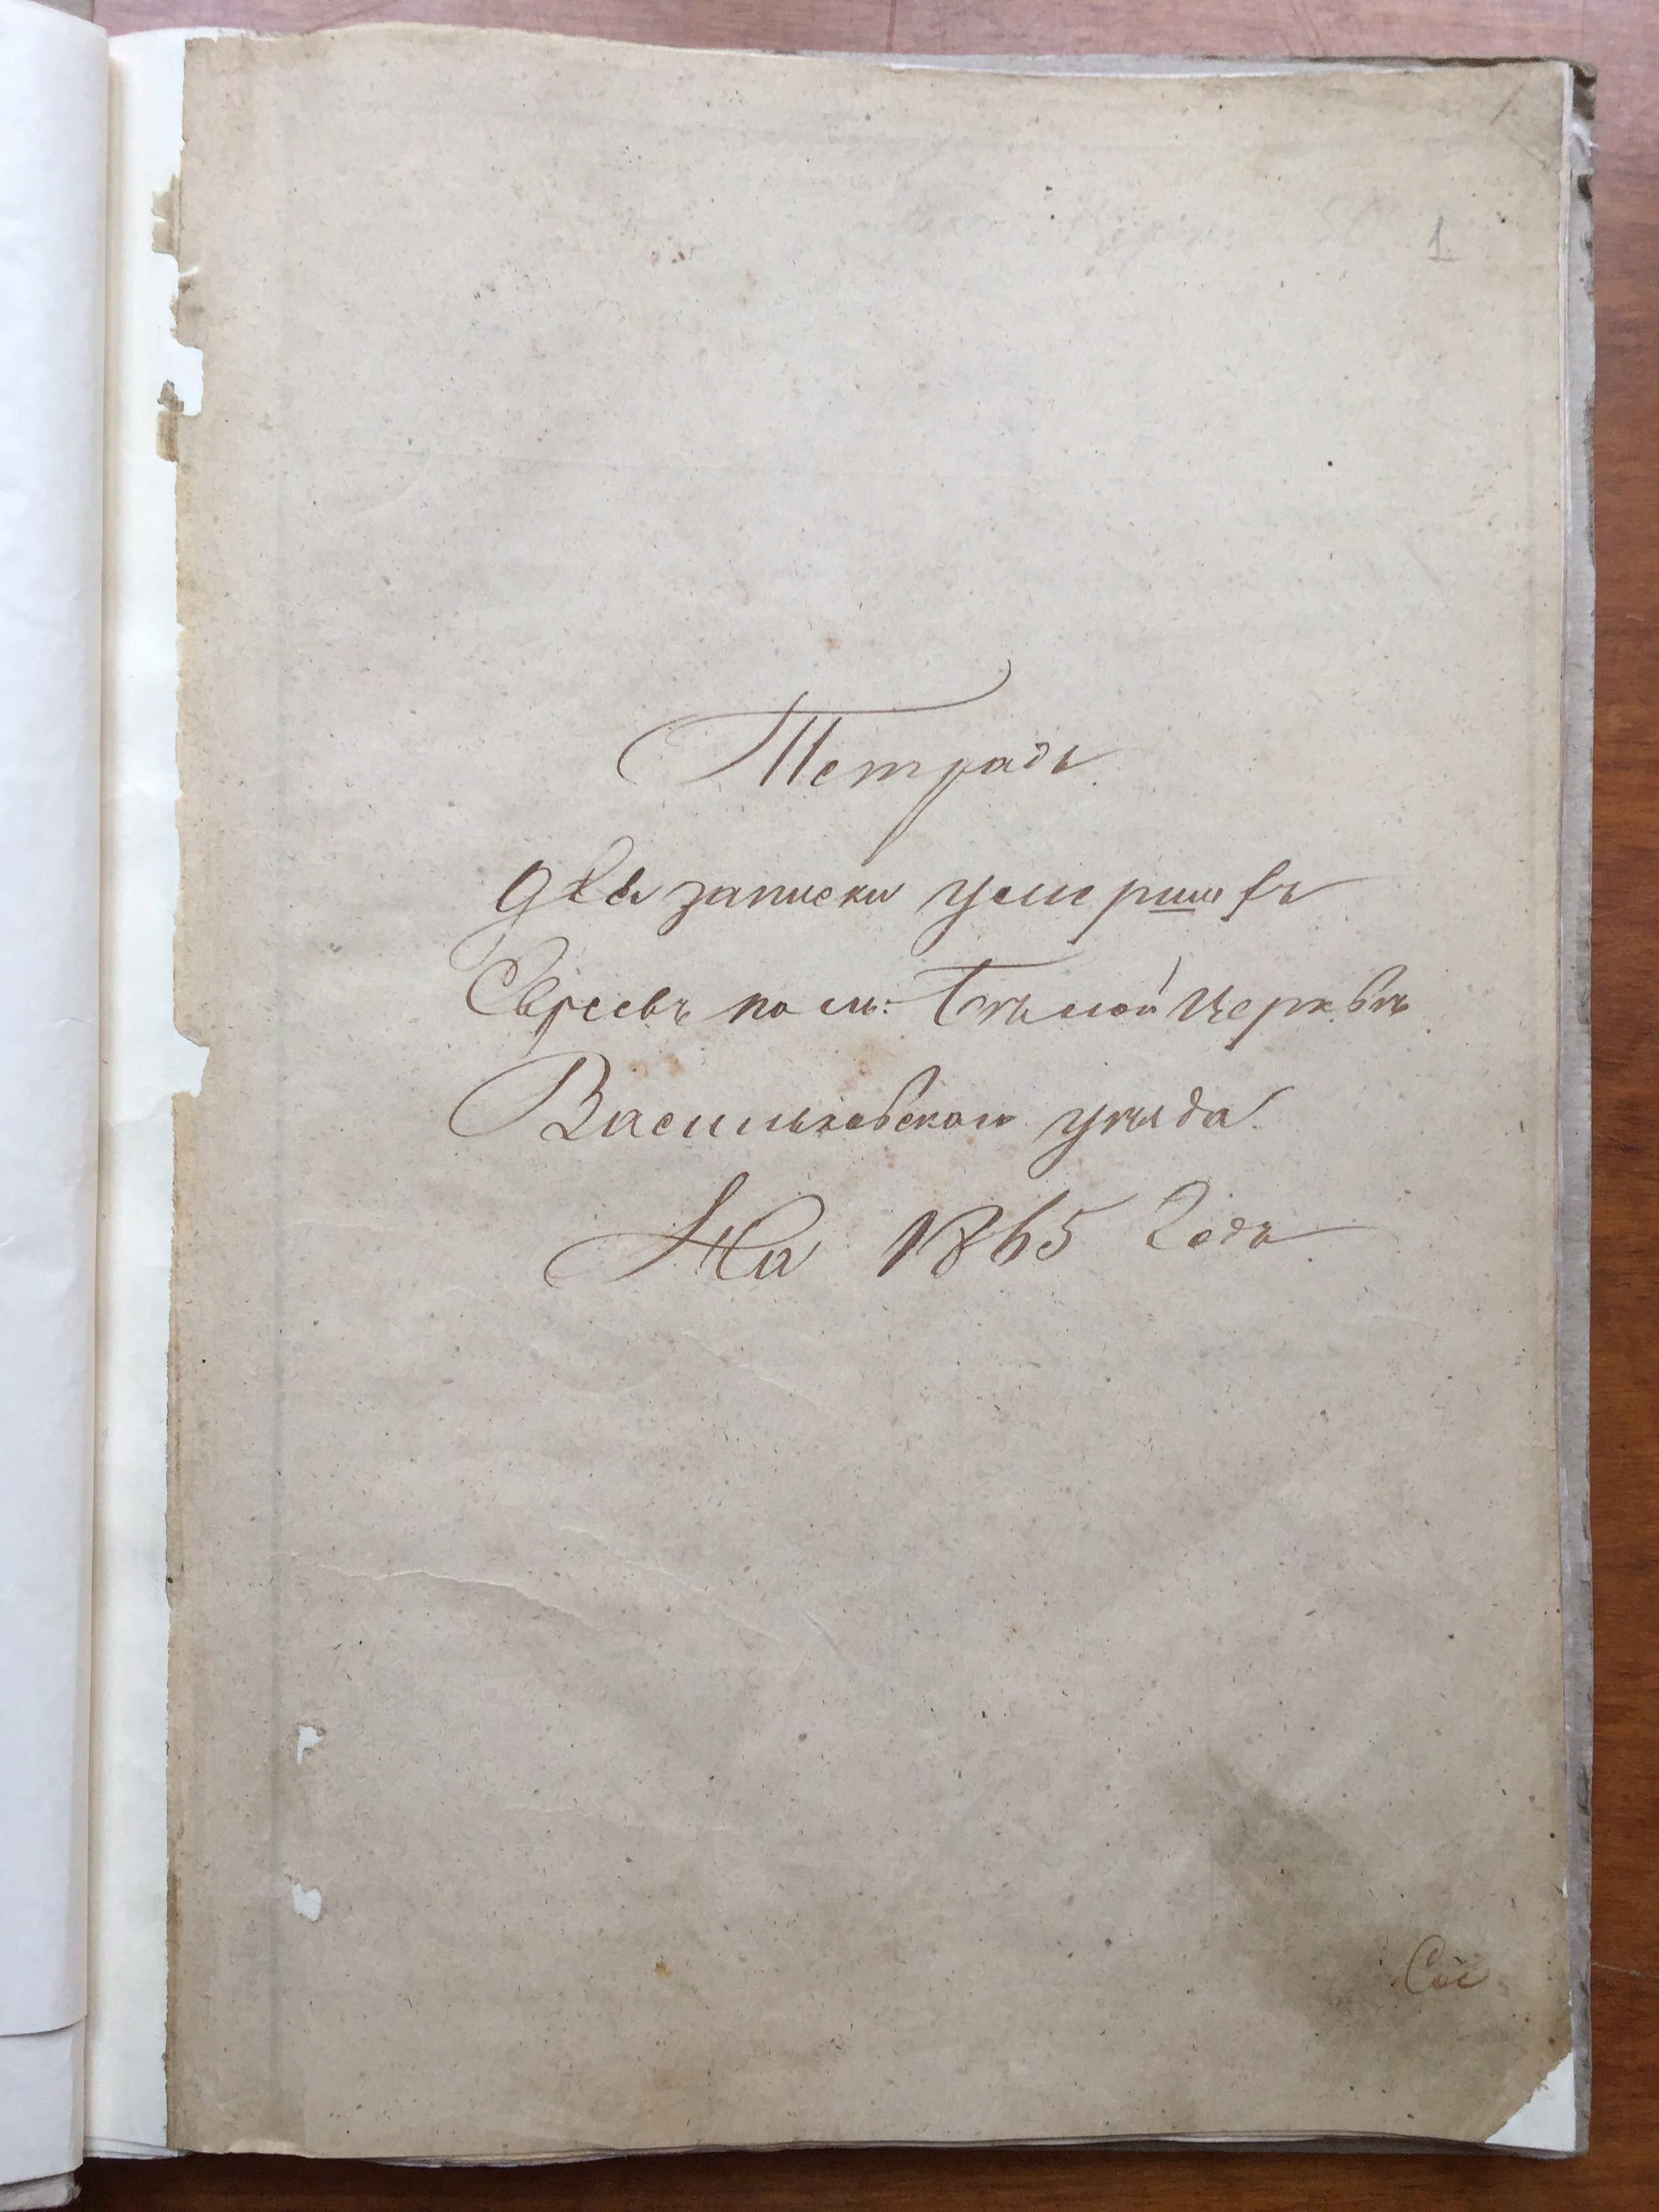 1
Тетрадь
для записки умершихъ
Евреевъ по м: Белой Церквѣ
Васильковскаго уѣзда
На 1865 Годъ